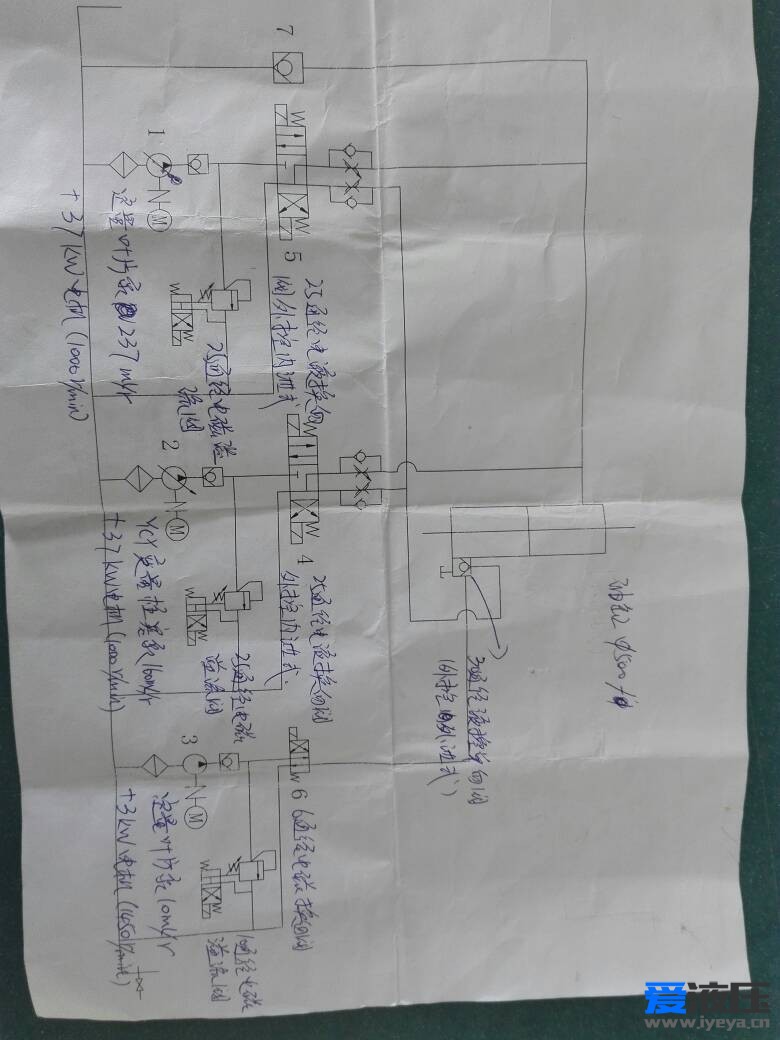 7
1
定量叶片泵 237 ml/r
+37KW电机(1000r/min)
5
25通径电液换向
阀外控内泄式
25通径电磁溢
流阀
2
YCY变量柱塞泵160ml/r
+37KW电机(1000r/min)
4
25通径电液换向阀
外控内泄式.
25通径电磁
溢流阀
3
定量叶片泵10ml/r
+3KW电机(1450r/min)
6
6通径电磁换向阀
10通径电磁
溢流阀
油缸φ500
M
M
M
W
W
W
W
W
W
W
W
爱液压
www.iyeya.cn